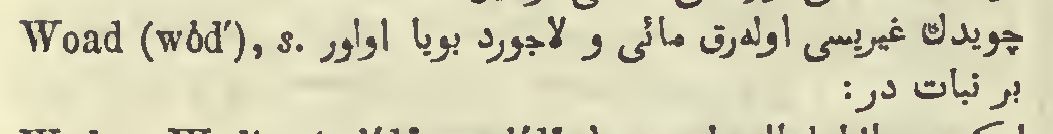 Woad (wôd′), s. چويدڭ غيريسى اوله‌رق مائى و لاجورد بويا اولور
بر نبات در: